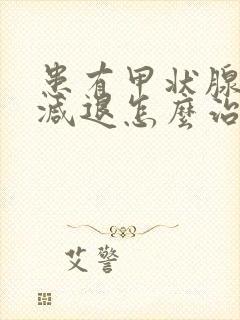 患有甲状腺
减退怎麼治
艾警